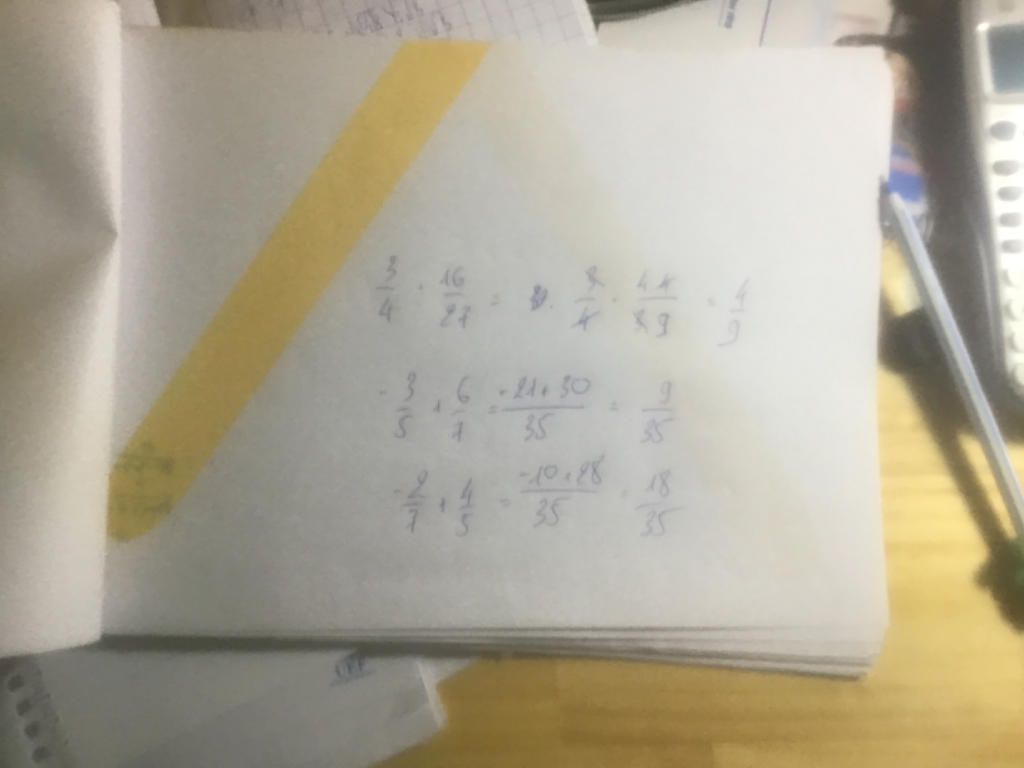 3/4 · 16/27 = 3/4 · 4·4/3·9 = 4/9
-3/5 + 6/7 = -21+30/35 = 9/35
-2/7 + 4/5 = -10+28/35 = 18/35